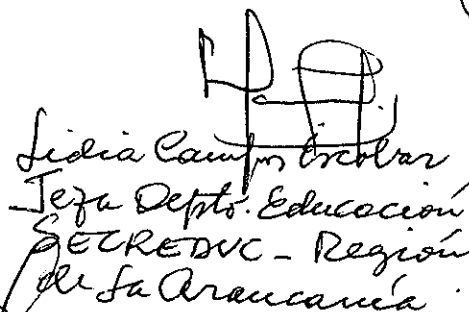 Lidia Campos Escobar
Jefa Depto. Educación
SECREDUC - Región
de La Araucanía